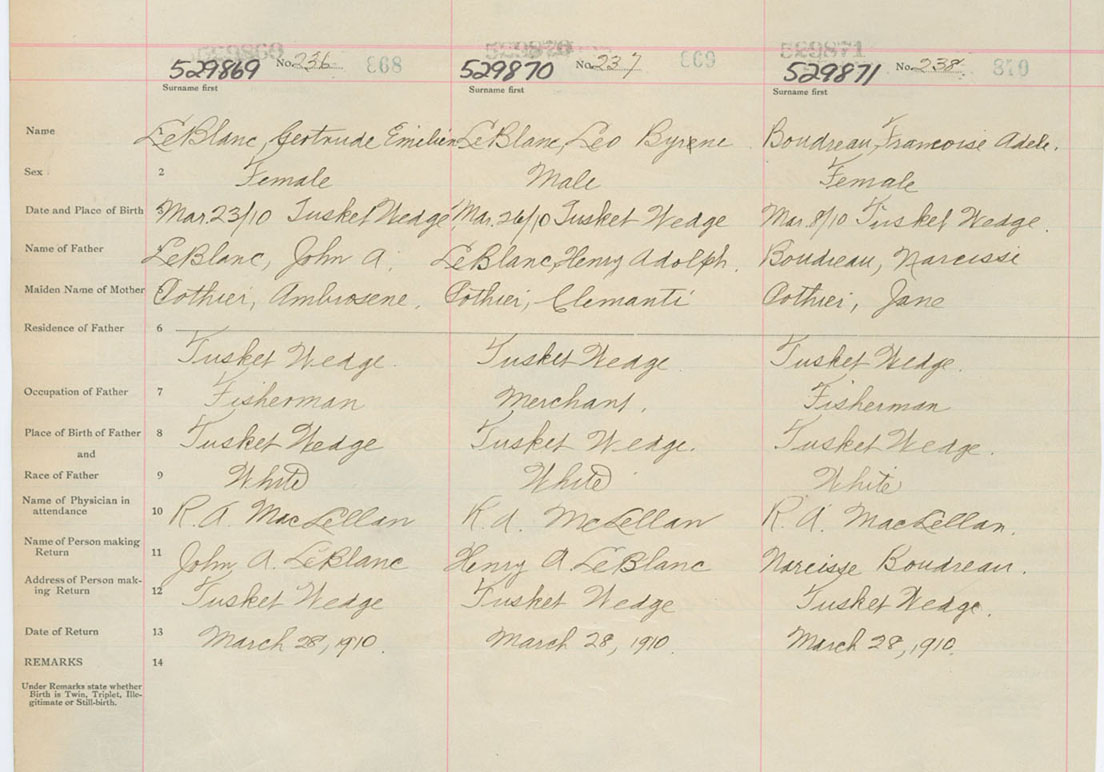 529869 No. 236 868 529870 No. 237 869 529871 No. 238 870
Surname first Surname first Surname first
Name 1 LeBlanc, Gertrude Emilien LeBlanc, Leo Byrene Boudreau, Francoise Adele.
Sex 2 Female Male Female
Date and Place of Birth 3 Mar. 23/10 Tusket Wedge Mar. 26/10 Tusket Wedge Mar. 8/10 Tusket Wedge.
Name of Father 4 LeBlanc, John A. LeBlanc, Henry Adolph. Boudreau, Narcisse
Maiden Name of Mother 5 Pothier, Ambrosene. Pothier, Clemanti Pothier, Jane
Residence of Father 6
Tusket Wedge. Tusket Wedge. Tusket Wedge.
Occupation of Father 7 Fisherman Merchant. Fisherman
Place of Birth of Father 8 Tusket Wedge Tusket Wedge. Tusket Wedge.
and
Race of Father 9 White White White
Name of Physician in
attendance 10 R. A. MacLellan R. A. McLellan R. A. MacLellan.
Name of Person making
Return 11 John A. LeBlanc Henry A. LeBlanc Narcisse Boudreau.
Address of Person mak-
ing Return 12 Tusket Wedge Tusket Wedge Tusket Wedge.
Date of Return 13 March 28, 1910. March 28, 1910. March 28, 1910.
REMARKS 14
Under Remarks state whether
Birth is Twin, Triplet, Ille-
gitimate or Still-birth.